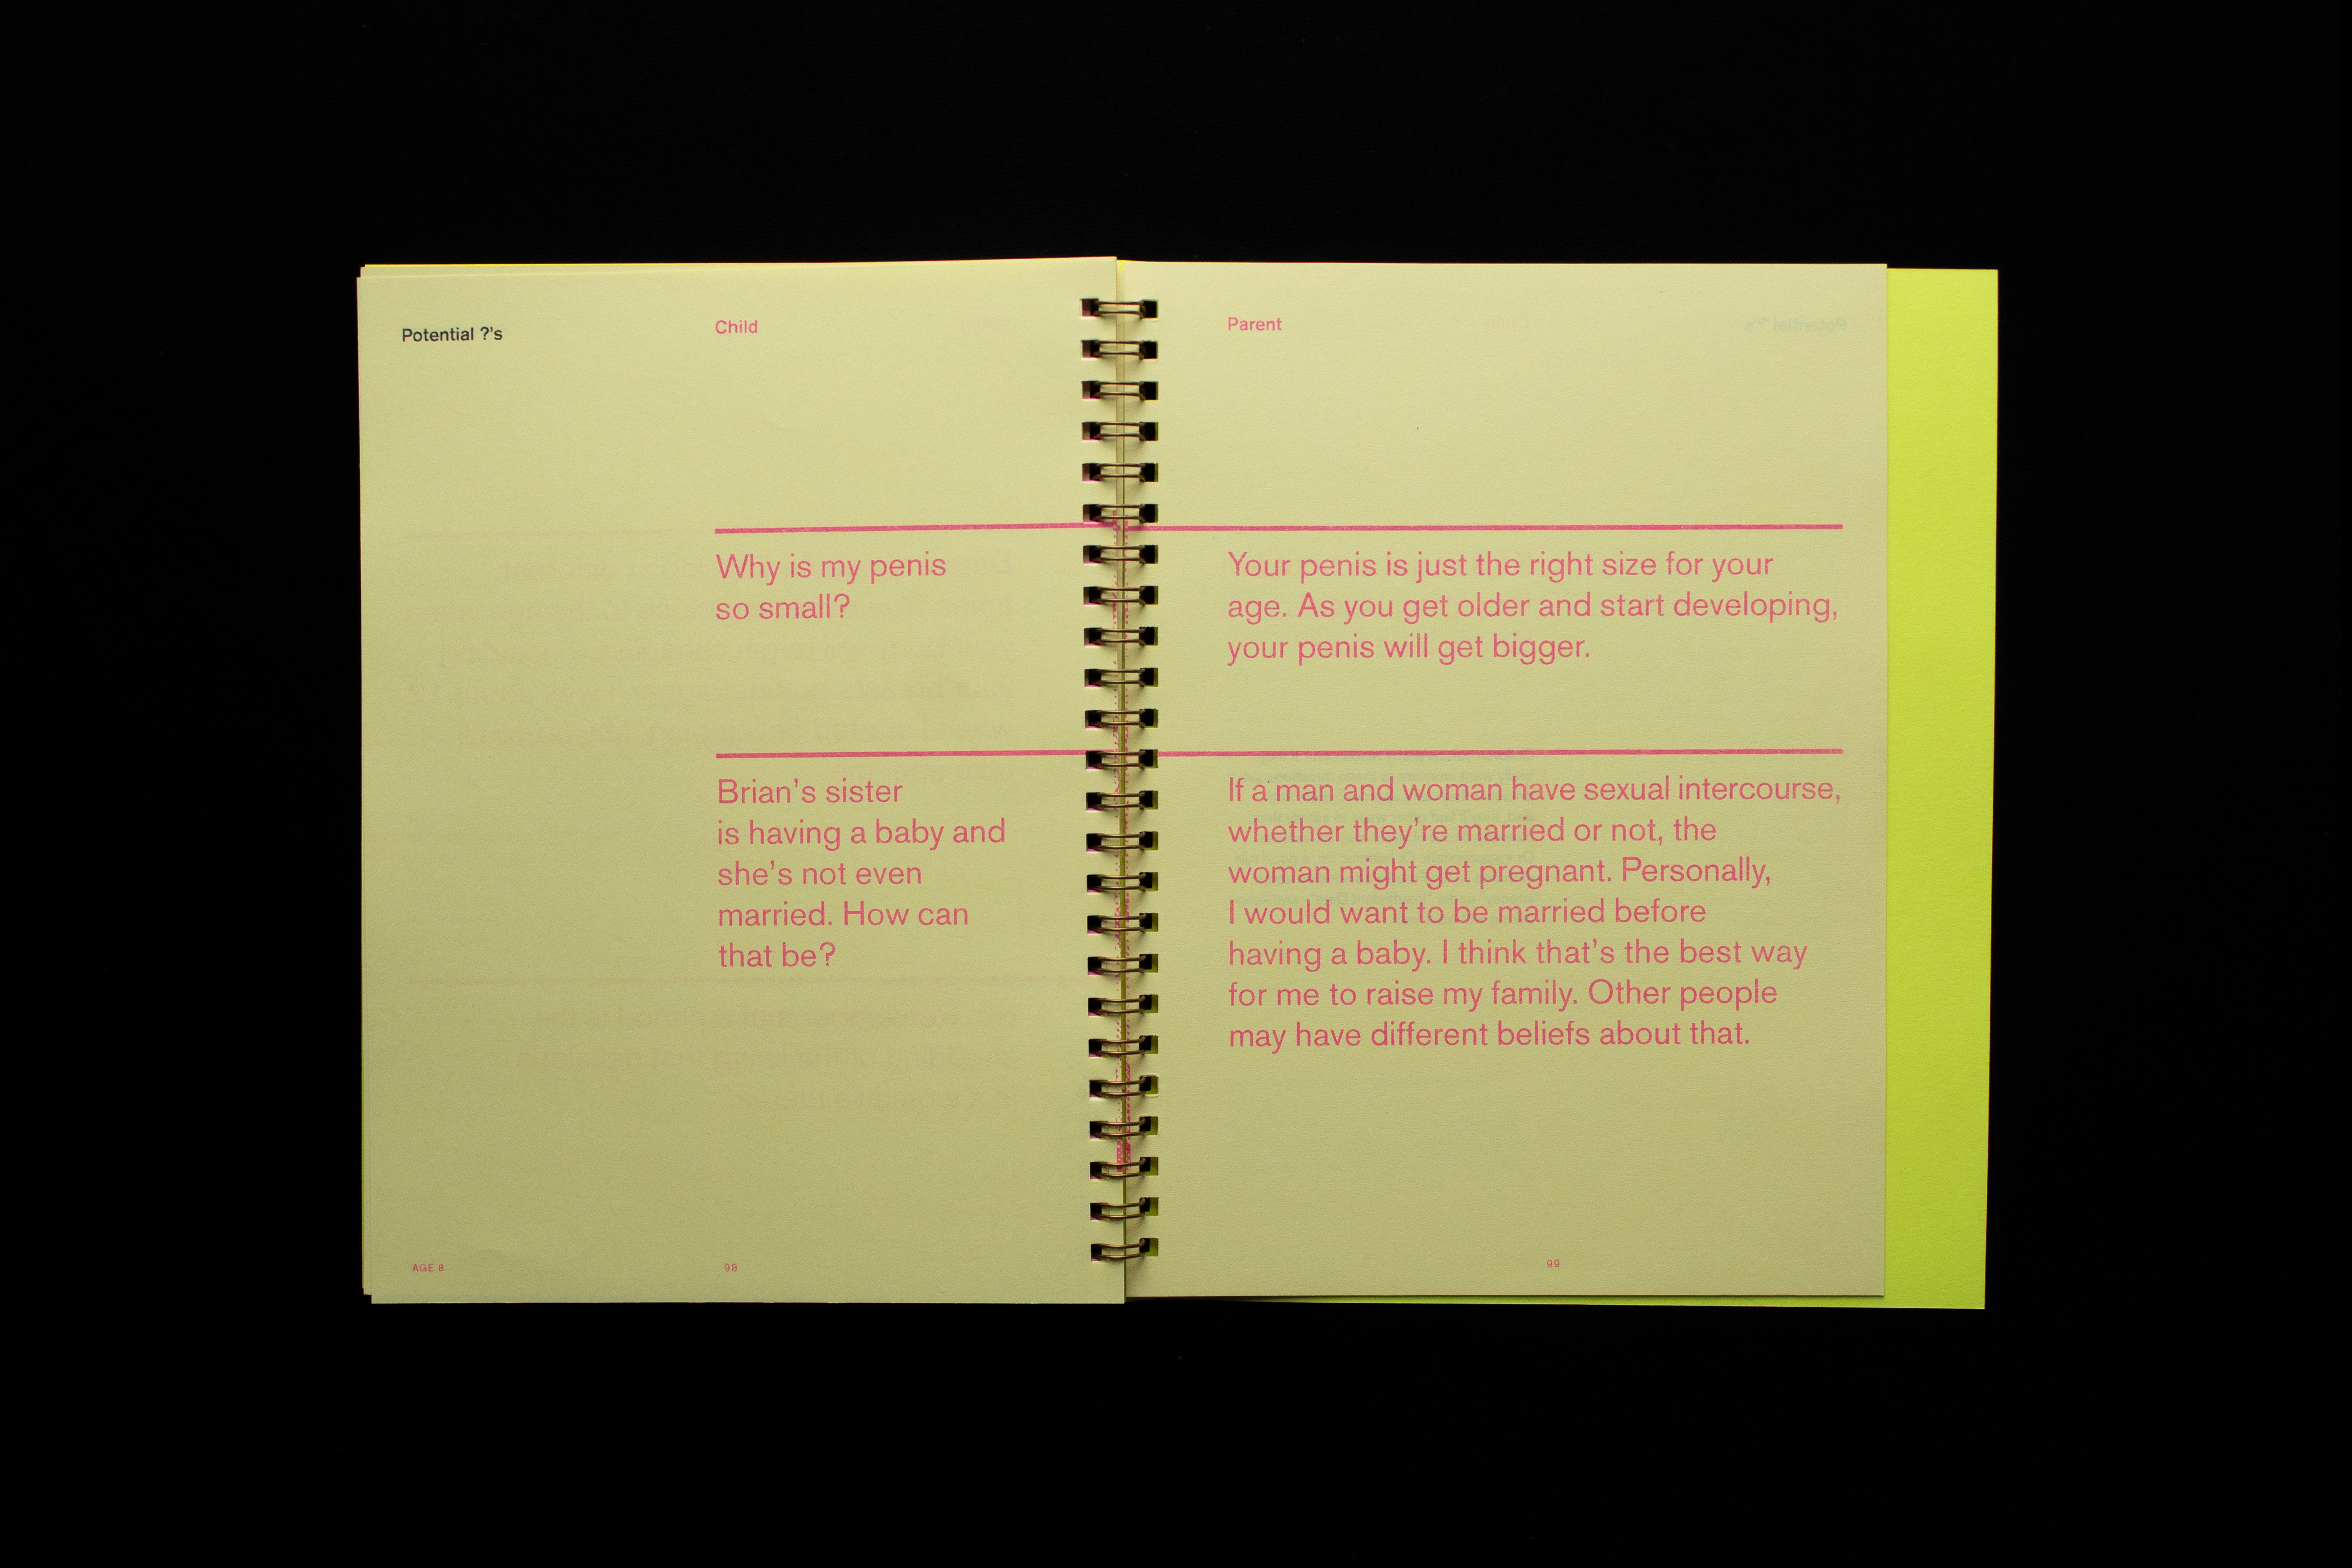 Potential ?'s
Child
Why is my penis
so small?
Brian's sister
is having a baby and
she's not even
married. How can
that be?
AGE 8
98
Parent
Your penis is just the right size for your
age. As you get older and start developing,
your penis will get bigger.
If a man and woman have sexual intercourse,
whether they're married or not, the
woman might get pregnant. Personally,
I would want to be married before
having a baby. I think that's the best way
for me to raise my family. Other people
may have different beliefs about that.
99